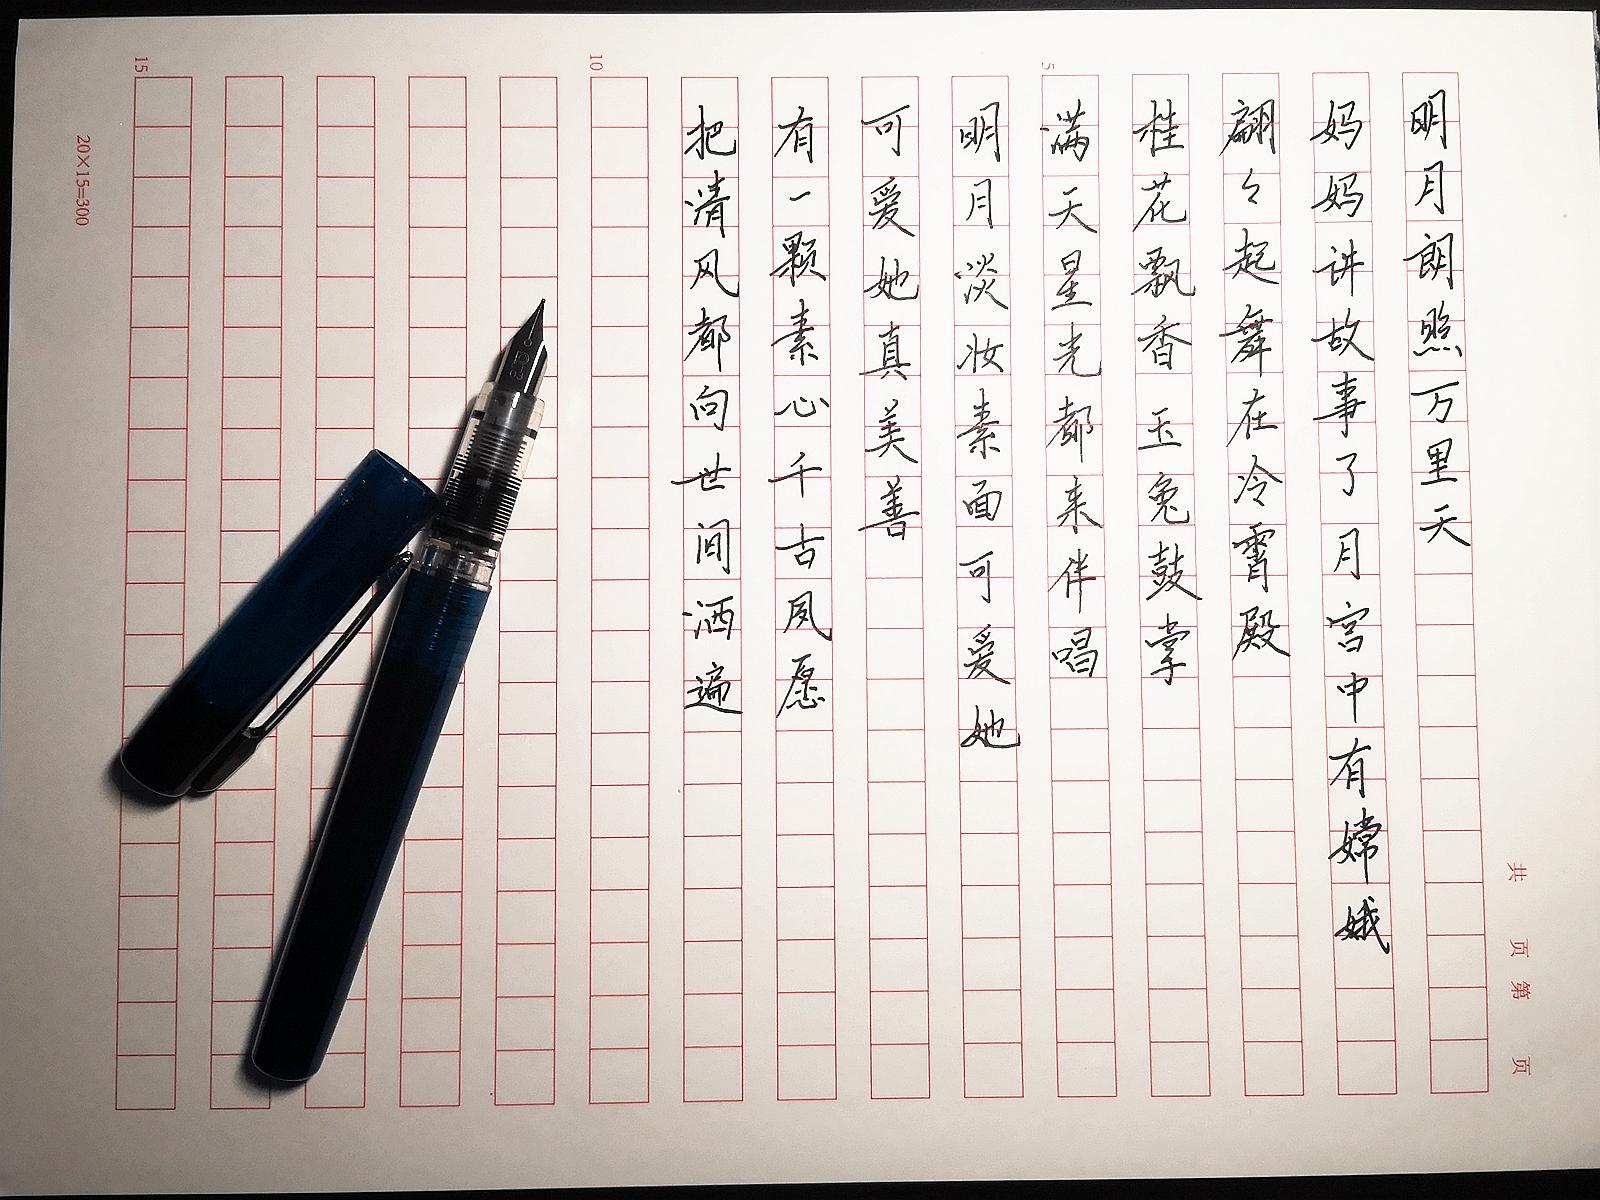 明月朗照万里天
妈妈讲故事了月宫中有嫦娥
翩々起舞在冷霄殿
桂花飘香玉兔鼓掌
满天星光都来伴唱
明月淡妆素面可爱她
可爱她真美善
有一颗素心千古夙愿
把清风都向世间洒遍
5
10
15
20×15=300
共 页 第 页